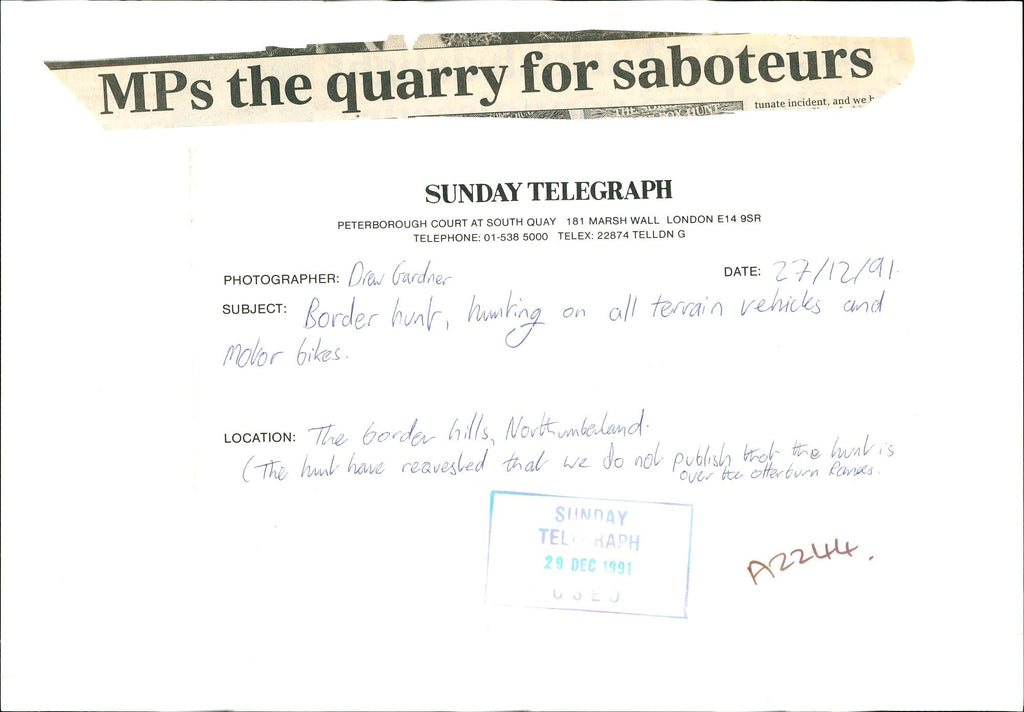 MPs the quarry for saboteurs
THE FOX HUNT
tunate incident, and we
SUNDAY TELEGRAPH
PETERBOROUGH COURT AT SOUTH QUAY 181 MARSH WALL LONDON E14 9SR
TELEPHONE: 01-538 5000 TELEX: 22874 TELLDN G
PHOTOGRAPHER: Drew Gardner DATE: 27/12/91.
SUBJECT: Border hunt, hunting on all terrain vehicles and
motor bikes.
LOCATION: The border hills, Northumberland.
(The hunt have requested that we do not publish that the hunt is
over the otterburn Ranges.
SUNDAY
TELEGRAPH
29 DEC 1991
USED
A2244.